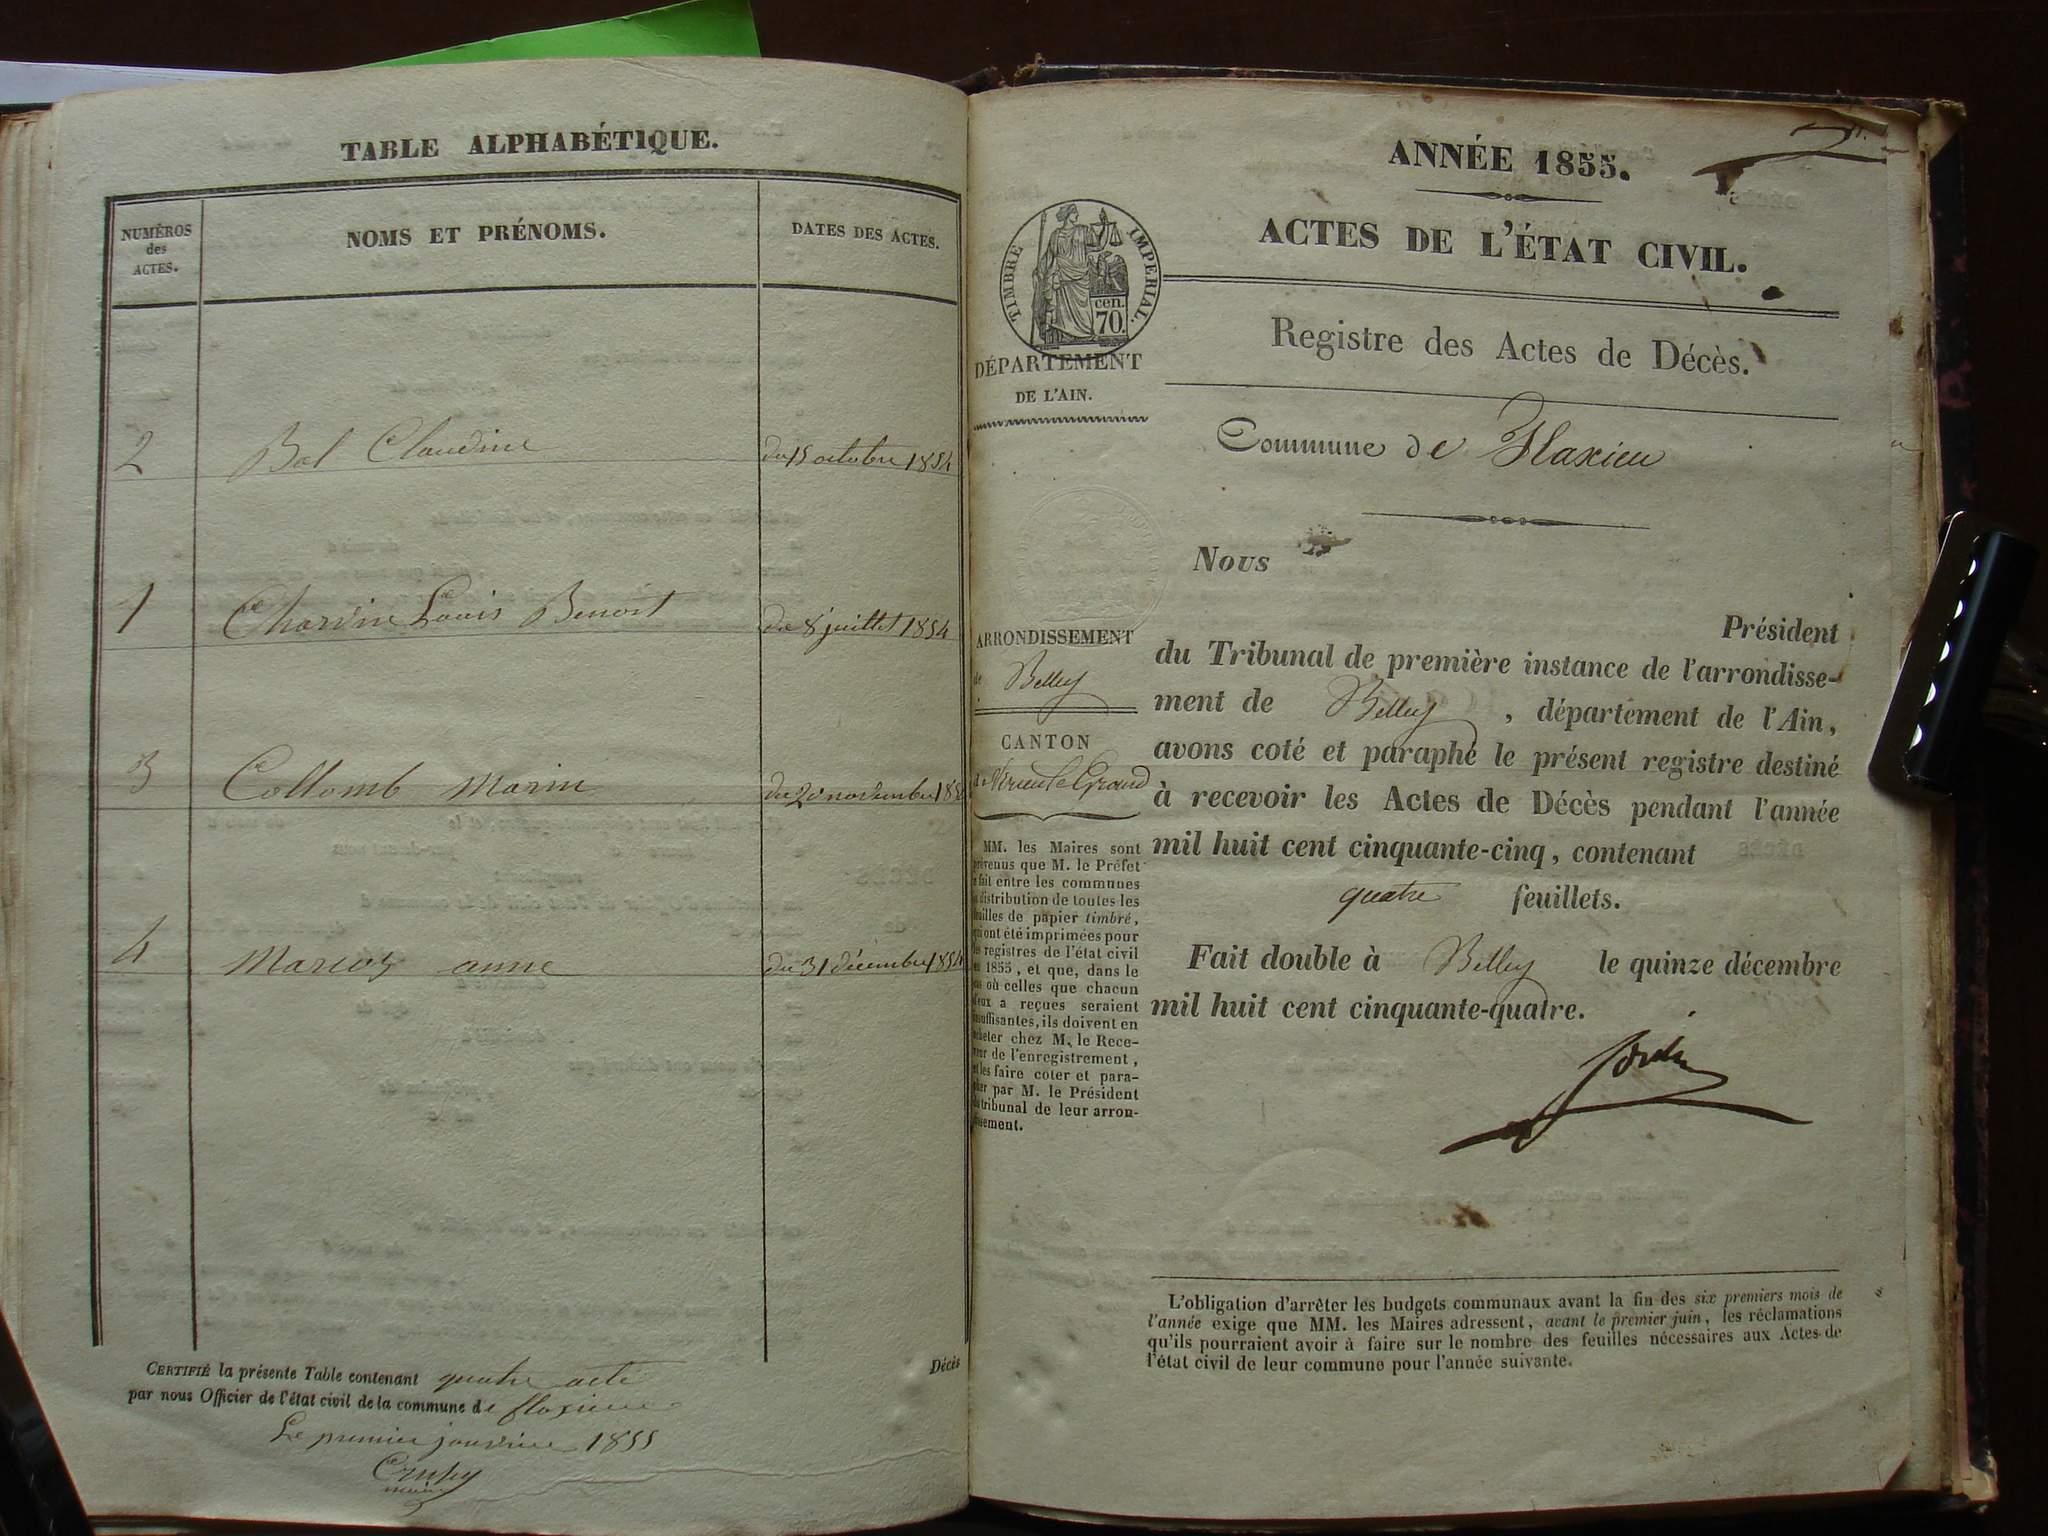 TABLE ALPHABÉTIQUE.
NUMÉROS
des
ACTES.
NOMS ET PRÉNOMS.
DATES DES ACTES.
2 Bal Claudine du 15 octobre 1854
1 Charvin Louis Benoit du 8 juillet 1854
3 Collomb Marin du 20 novembre 185
4 anne du 31 décembre 1854
CERTIFIÉ la présente Table contenant quatre acte Décès
par nous Officier de l'état civil de la commune de flaxieu
Le premier janvier 1855
maire
ANNÉE 1855.
ACTES DE L'ÉTAT CIVIL.
TIMBRE IMPERIAL.
cen.
70.
DÉPARTEMENT
DE L'AIN.
Registre des Actes de Décès.
Commune de Flaxieu
Nous
Président
du Tribunal de première instance de l'arrondisse-
ment de Belley, département de l'Ain,
avons coté et paraphé le présent registre destiné
à recevoir les Actes de Décès pendant l'année
mil huit cent cinquante-cinq, contenant
quatre feuillets.
Fait double à Belley le quinze décembre
mil huit cent cinquante-quatre.
ARRONDISSEMENT
de Belley
CANTON
de Virieu le Grand
MM. les Maires sont
prévenus que M. le Préfet
a fait entre les communes
la distribution de toutes les
feuilles de papier timbré,
qui ont été imprimées pour
les registres de l'état civil
en 1855, et que, dans le
cas où celles que chacun
d'eux a reçues seraient
insuffisantes, ils doivent en
acheter chez M. le Rece-
veur de l'enregistrement,
et les faire coter et para-
pher par M. le Président
du tribunal de leur arron-
dissement.
L'obligation d'arrêter les budgets communaux avant la fin des six premiers mois de
l'année exige que MM. les Maires adressent, avant le premier juin, les réclamations
qu'ils pourraient avoir à faire sur le nombre des feuilles nécessaires aux Actes de
l'état civil de leur commune pour l'année suivante.